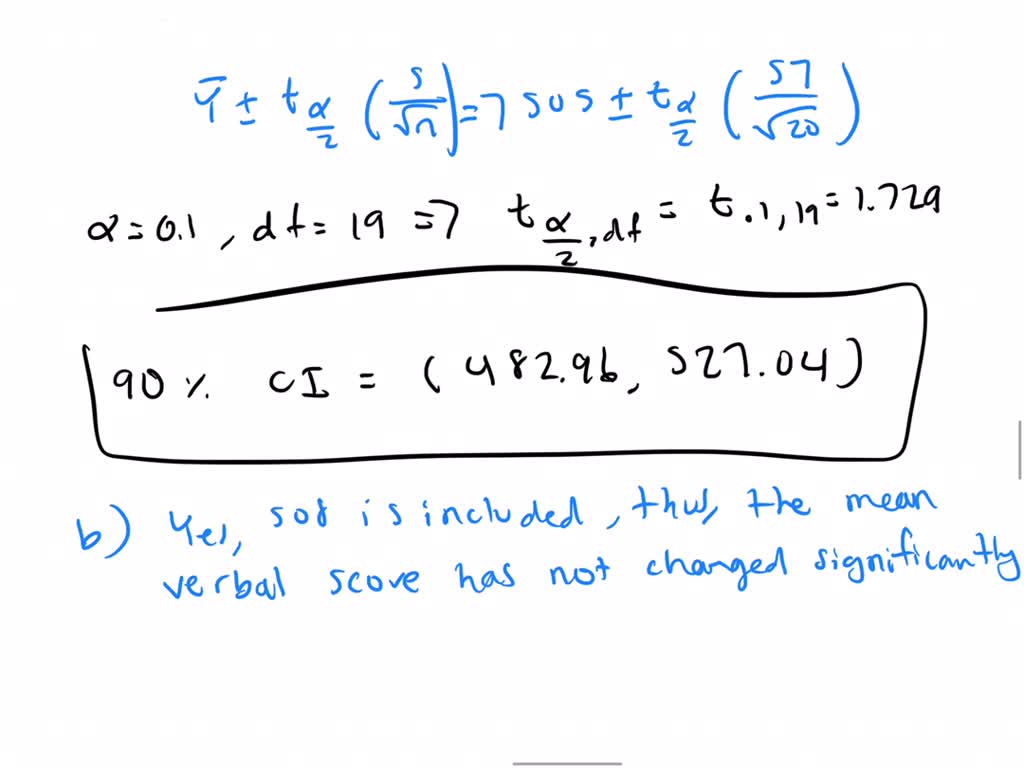 Ȳ ± t α/2 (s/√n) => 505 ± t α/2 (57/√20)
α = 0.1 , df = 19 => t α/2, df = t .1, 19 = 1.729
90 % CI = (482.96, 527.04)
b) Yes, 508 is included, thus, the mean
verbal score has not changed significantly